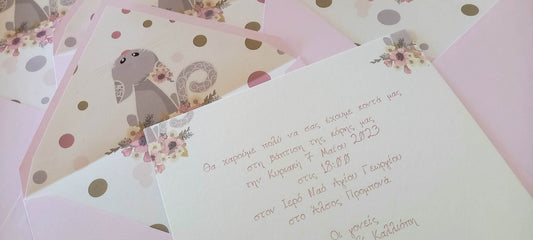 Θα χαρούμε πολύ να σας έχουμε κοντά μας
στη βάπτιση της κόρης μας
την Κυριακή 7 Μαΐου 2023
στις 18:00
στον Ιερό Ναό Αγίου Γεωργίου
στο Άλσος Προμπονά.
Οι γονείς
Καλλιόπη